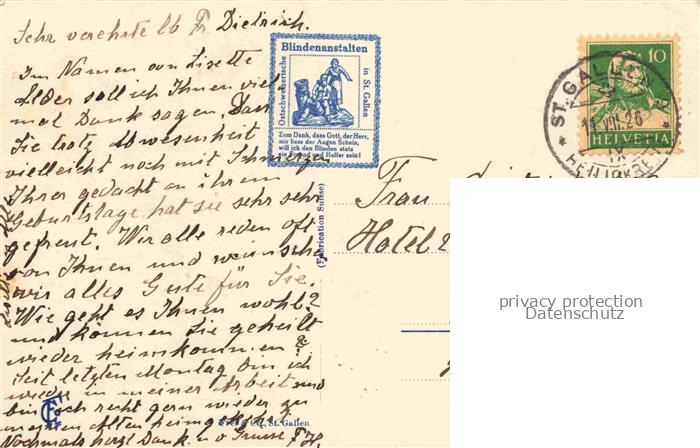 Sehr verehrte lb Fr Dietrich.
Im Namen von Lisette
soll ich Ihnen viel-
mal Dank sagen. Dass
Sie trotz Abwesenheit
vielleicht noch mit Schmerzen
Ihrer gedacht an ihrem
Geburtstage, hat sie sehr sehr
gefreut. Wir alle reden oft
von Ihnen und wünschen
wir alles Gute für Sie.
Wie geht es Ihnen wohl?
und können Sie geheilt
wieder heimkommen?
Seit letzten Montag bin ich
wieder in meiner Arbeit und
bin doch recht gern wieder zu
meinen Alten heimgekehrt.
Nochmals herzl Dank u. Grüsse
Blindenanstalten
Ostschweizerische
in St. Gallen
Zum Dank, dass Gott, der Herr,
mir liess der Augen Schein,
will ich den Blinden stets
ein Freund und Helfer sein!
10
HELVETIA
ST. GALLEN
VIII.26
HEILIGKREUZ
(Fabrication Suisse)
Frau
Hotel
& Co., St. Gallen
privacy protection
Datenschutz